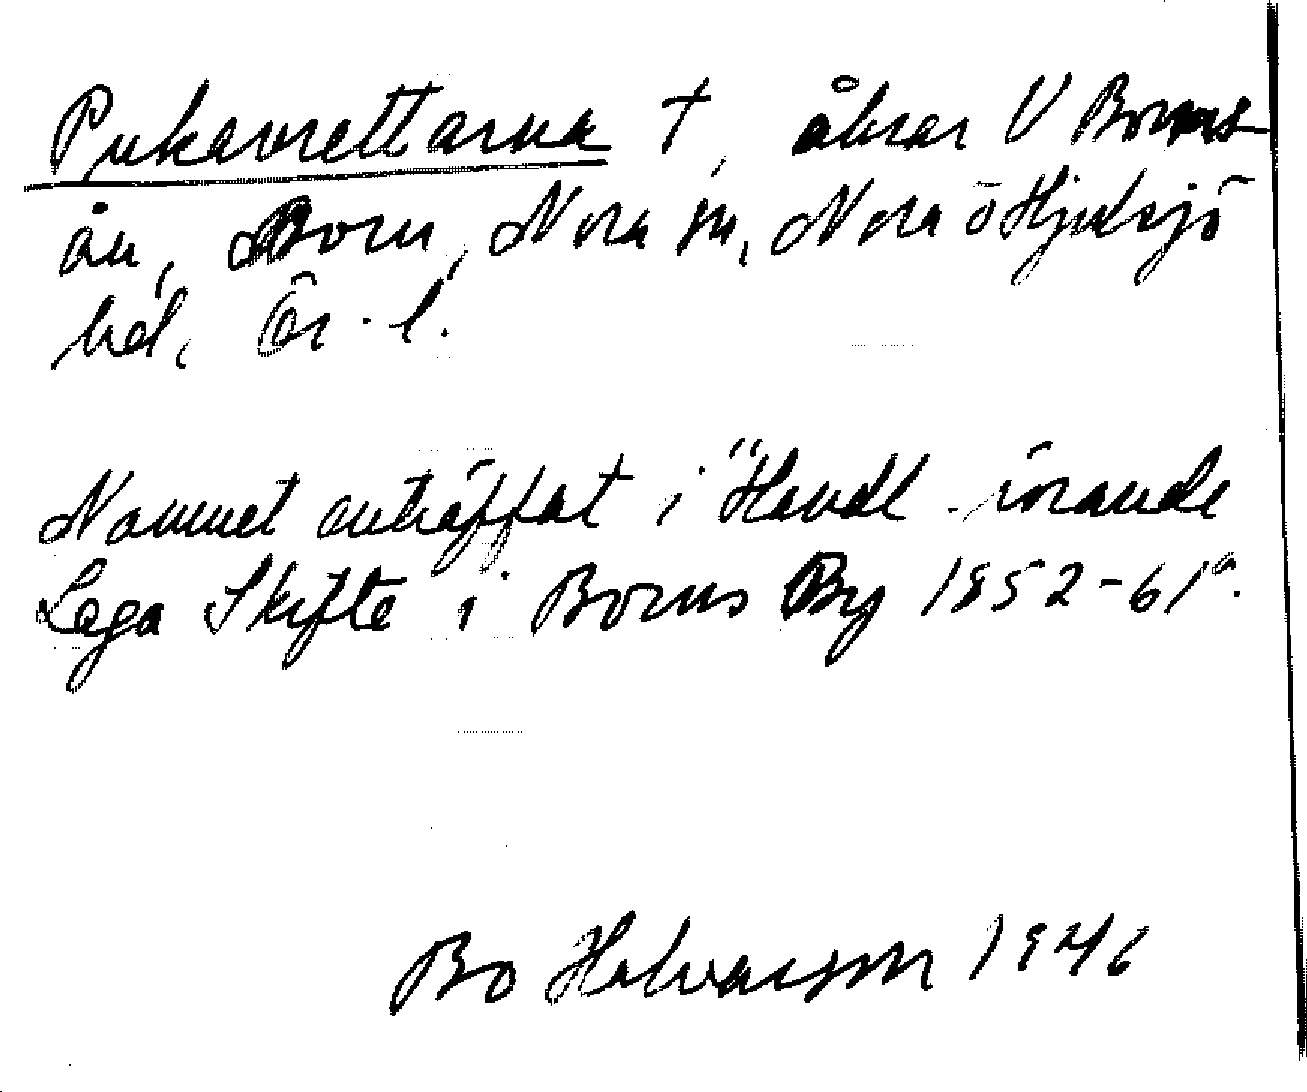 Pukavrettarna †, åkrar V Borns-
ån, Born, Nora sn, Nora o Hjulsjö
hd, Ör. l.
Namnet anträffat i "Handl rörande
Laga Skifte i Borns By 1852-61".
Bo Halvarsson 1946